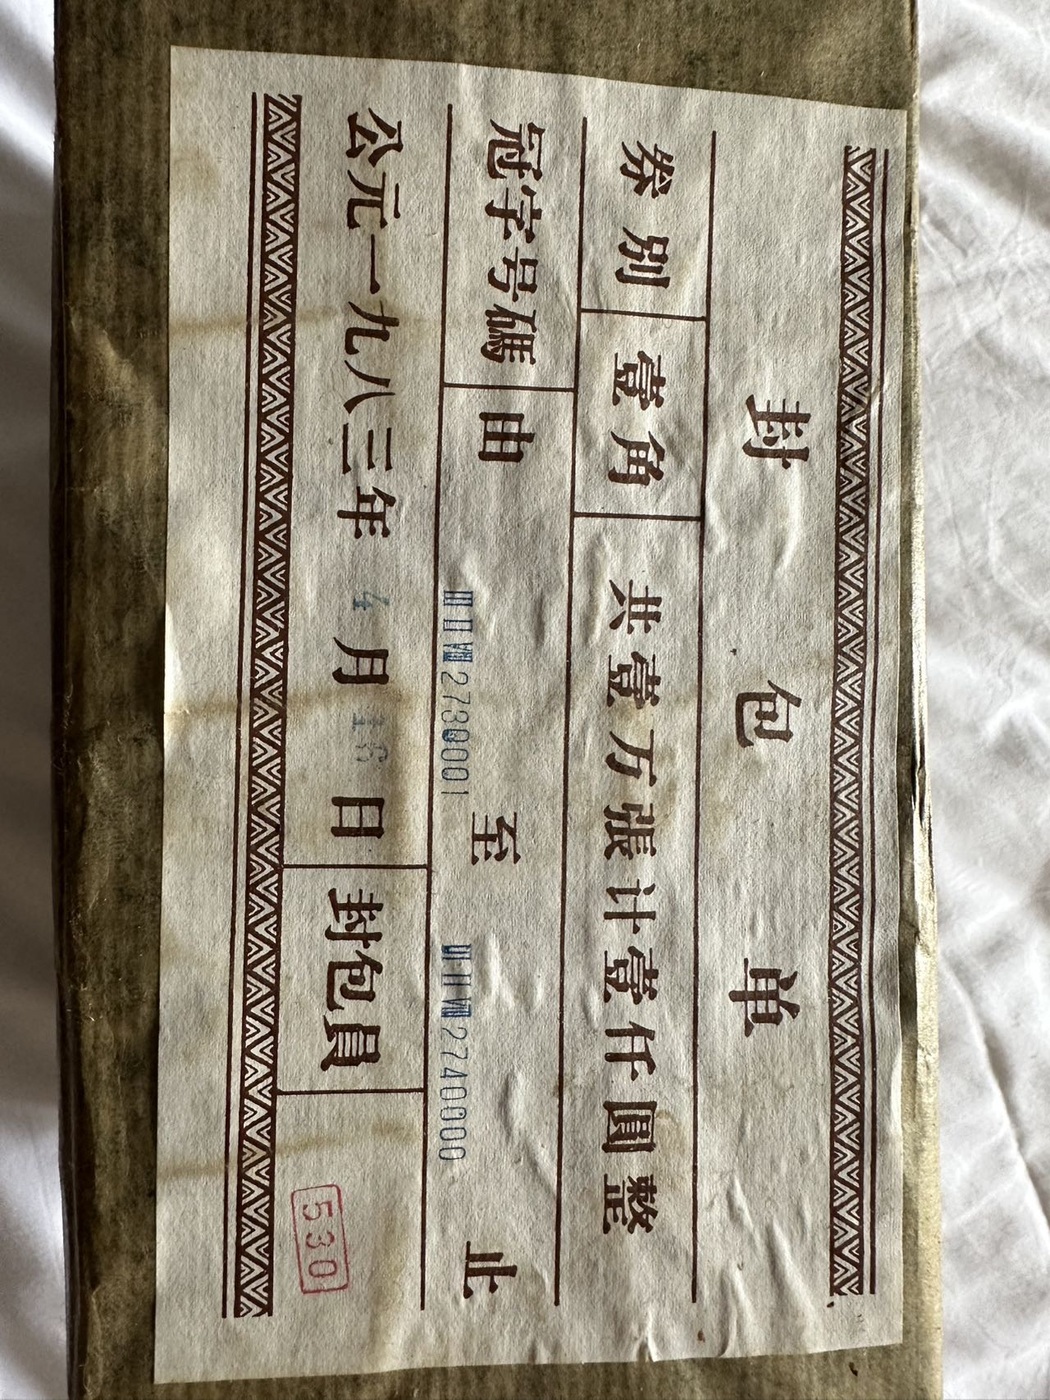 封包单
券别 壹角 共壹万張计壹仟圓整
冠字号碼 由 ⅢⅡⅦ2730001 至 ⅢⅡⅦ2740000 止
公元一九八三年4月16日 封包員 530